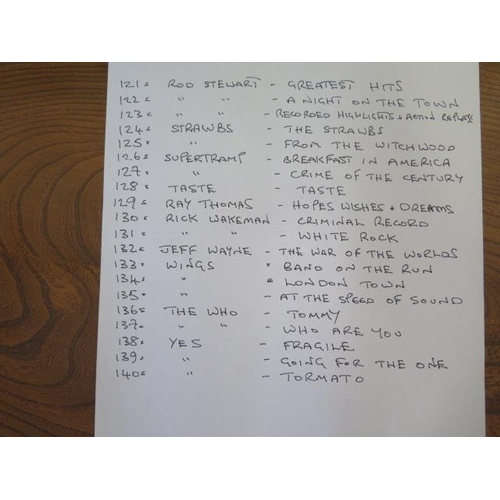 121. ROD STEWART - GREATEST HITS
122. " " - A NIGHT ON THE TOWN
123. " " - RECORDED HIGHLIGHTS + ACTION REPLAYS
124. STRAWBS - THE STRAWBS
125. " - FROM THE WITCHWOOD
126. SUPERTRAMP - BREAKFAST IN AMERICA
127. " - CRIME OF THE CENTURY
128. TASTE - TASTE
129. RAY THOMAS - HOPES WISHES + DREAMS
130. RICK WAKEMAN - CRIMINAL RECORD
131. " " - WHITE ROCK
132. JEFF WAYNE - THE WAR OF THE WORLDS
133. WINGS - BAND ON THE RUN
134. " - LONDON TOWN
135. " - AT THE SPEED OF SOUND
136. THE WHO - TOMMY
137. " " - WHO ARE YOU
138. YES - FRAGILE
139. " - GOING FOR THE ONE
140. " - TORMATO